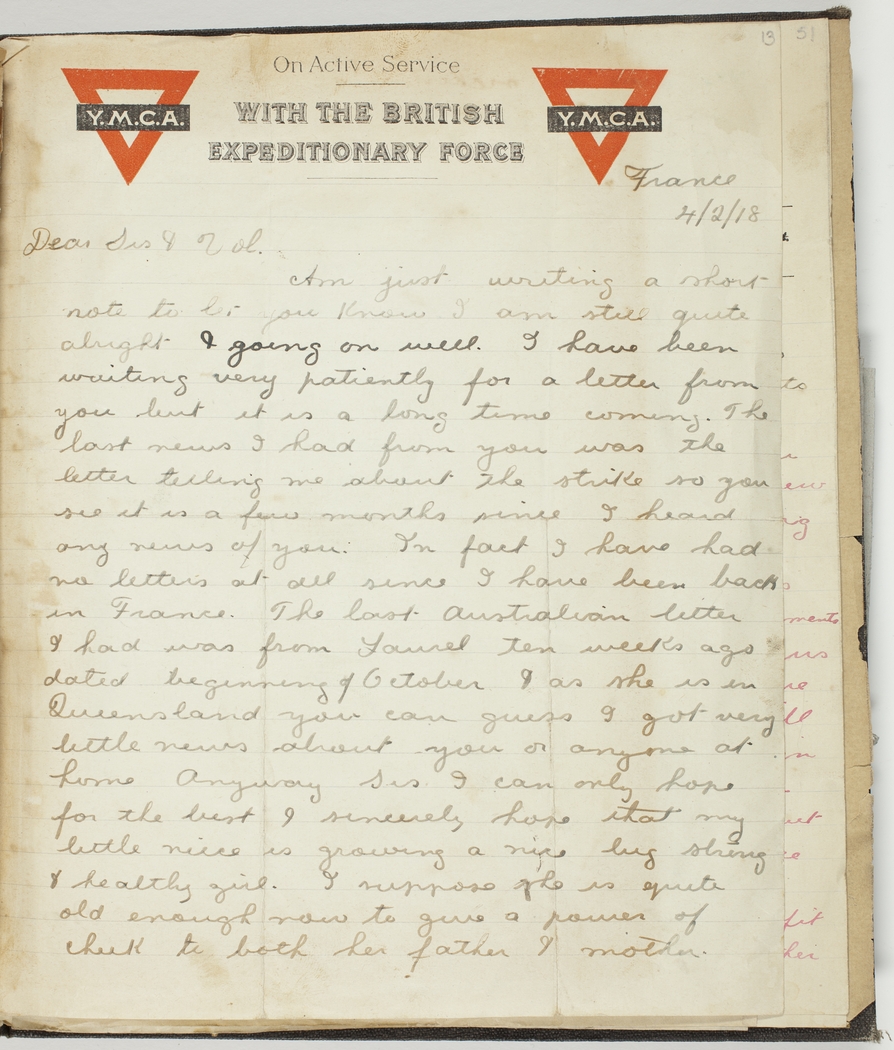 13 51
On Active Service
Y.M.C.A. WITH THE BRITISH Y.M.C.A.
EXPEDITIONARY FORCE
France
4/2/18
Dear Sis & Val.
Am just writing a short
note to let you know I am still quite
alright & going on well. I have been
waiting very patiently for a letter from
you but it is a long time coming. The
last news I had from you was the
letter telling me about the strike so you
see it is a few months since I heard
any news of you. In fact I have had
no letters at all since I have been back
in France. The last Australian letter
I had was from Laurel ten weeks ago
dated beginning of October & as she is in
Queensland you can guess I got very
little news about you or anyone at
home Anyway Sis I can only hope
for the best I sincerely hope that my
little niece is growing a nice big strong
& healthy girl. I suppose she is quite
old enough now to give a power of
cheek to both her father & mother.
to
ments
us
ll
fit
her